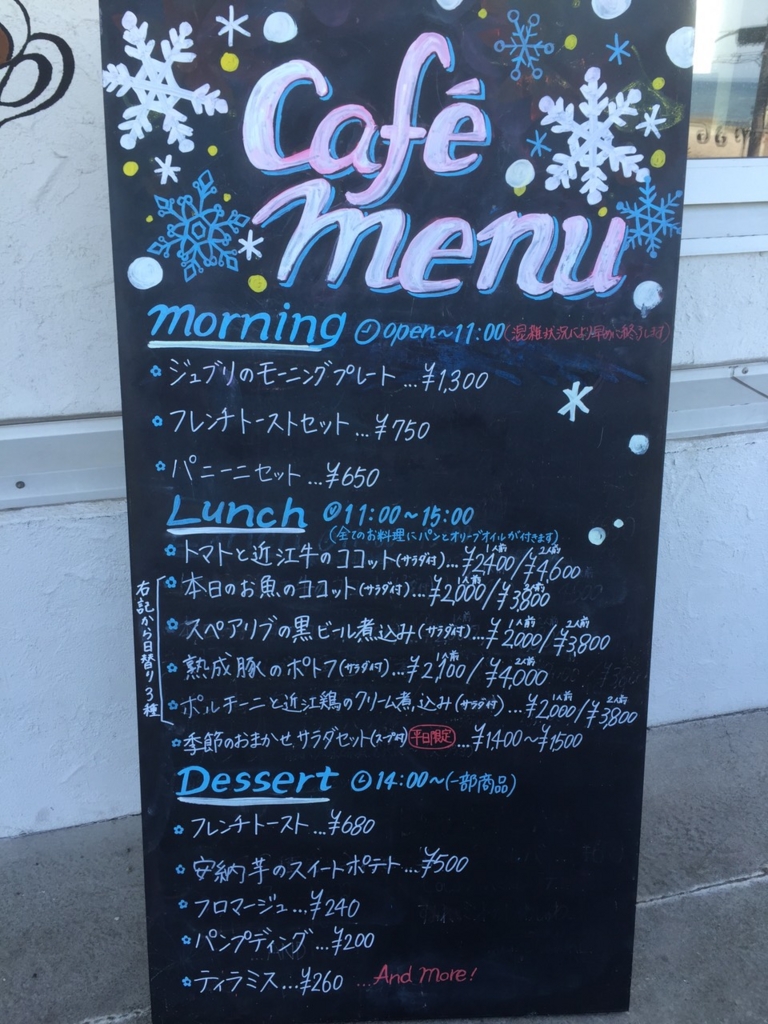 Café
menu
morning open~11:00(混雑状況により早めに終了します)
ジュブリのモーニングプレート...¥1,300
フレンチトーストセット...¥750
パニーニセット...¥650
Lunch 11:00~15:00
(全てのお料理にパンとオリーブオイルが付きます)
トマトと近江牛のココット(サラダ付)...1人前¥2,400/2人前¥4,600
右記から日替り3種
本日のお魚のココット(サラダ付)...1人前¥2,000/2人前¥3,800
スペアリブの黒ビール煮込み(サラダ付)...1人前¥2,000/2人前¥3,800
熟成豚のポトフ(サラダ付)...1人前¥2,100/2人前¥4,000
ポルチーニと近江鶏のクリーム煮込み(サラダ付)...1人前¥2,000/2人前¥3,800
季節のおまかせサラダセット(スープ付)平日限定...¥1400~¥1500
Dessert 14:00~(一部商品)
フレンチトースト...¥680
安納芋のスイートポテト...¥500
フロマージュ...¥240
パンプディング...¥200
ティラミス...¥260 ...And More!